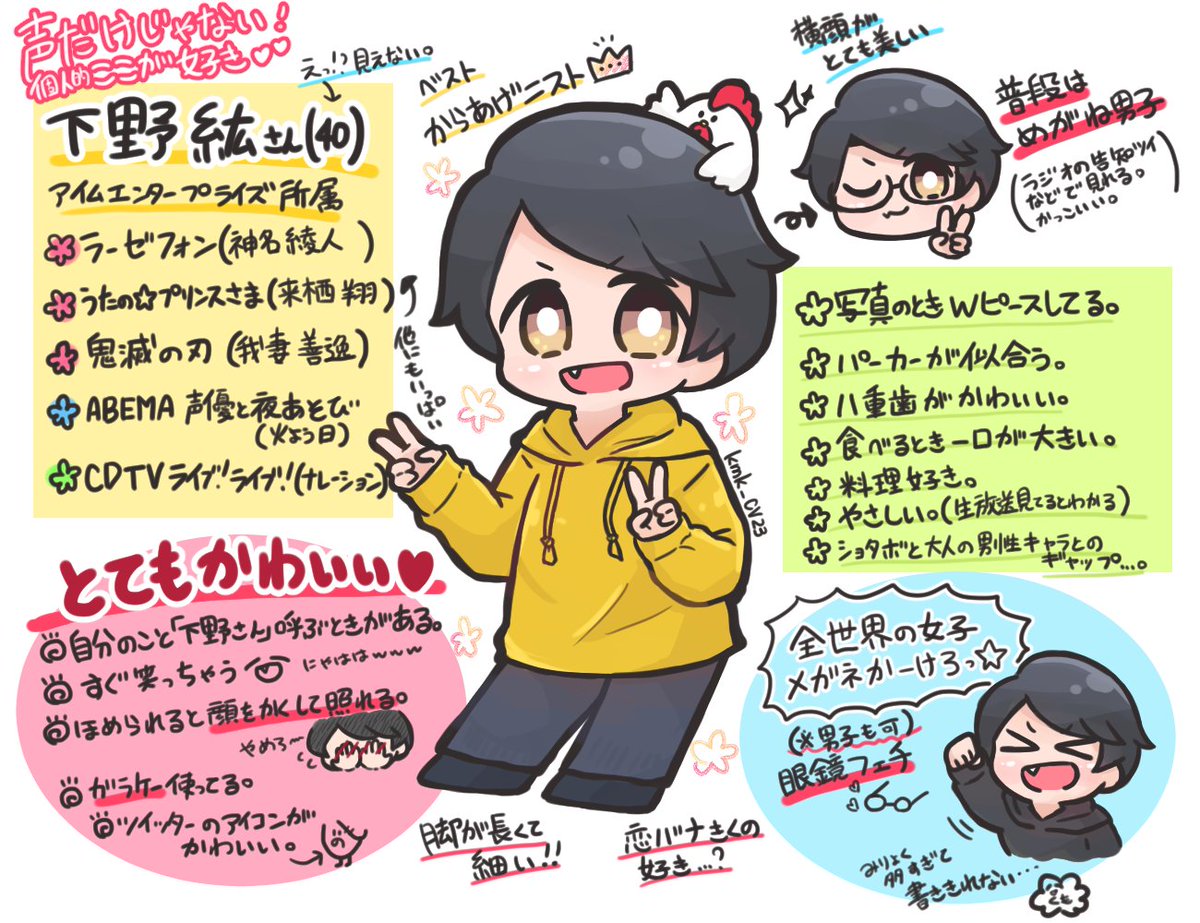 声だけじゃない!
個人的ここが好き♥♥
えっ!?見えない。
下野紘さん(40)
アイムエンタープライズ所属
ラーゼフォン(神名綾人 )
うたの☆プリンスさま(来栖翔)
鬼滅の刃 (我妻善逸)
他にもいっぱい。
ABEMA 声優と夜あそび
(火よう日)
CDTVライブ!ライブ!(ナレーション)
ベスト
からあげニスト
横顔が
とても美しい
普段は
めがね男子
(ラジオの告知ツイ
などで見れる。
かっこいい。)
写真のときWピースしてる。
パーカーが似合う。
八重歯がかわいい。
食べるとき一口が大きい。
料理好き。
やさしい。(生放送見てるとわかる)
ショタボと大人の男性キャラとの
ギャップ...。
kmk_CV23
とてもかわいい♥
自分のこと「下野さん」呼ぶときがある。
すぐ笑っちゃう
にゃははwww
ほめられると顔をかくして照れる。
やめろ〜
ガラケー使ってる。
ツイッターのアイコンが
かわいい。
脚が長くて
細い!!
恋バナきくの
好き...?
全世界の女子
メガネかーけろっ☆
(※男子も可)
眼鏡フェチ
みりょく
多すぎて
書ききれない...